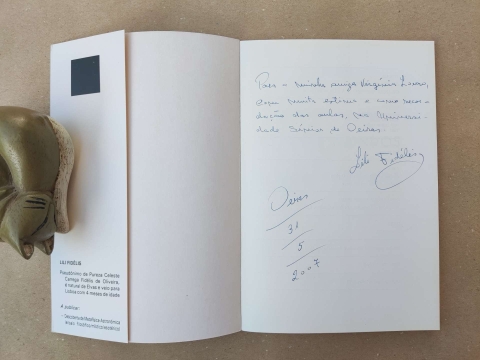 LILI FIDÉLIS
Pseudónimo de Pureza Celeste
Camego Fidélis de Oliveira,
é natural de Elvas e veio para
Lisboa com 4 meses de idade
A publicar:
Para a minha amiga Virgínia
com muita estima e como recor-
dação das aulas, na Universi-
dade Sénior de Oeiras.
Lili Fidélis
Oeiras
31
5
2007